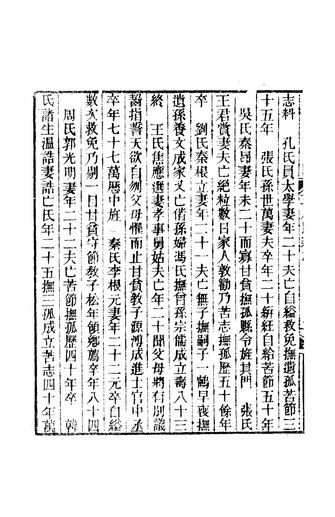 志科　孔氏員太學妻年二十夫亡自縊救免撫遺孤苦節三
十五年　張氏孫世萬妻夫卒年二十紡紝自給苦節五十年
吳氏秦昂妻年未二十而寡甘貧撫孤縣令旌其門　張氏
王君賞妻夫亡絕粒數日家人敦勸乃苦志撫孤歷五十餘年
卒　劉氏秦根立妻年二十一夫亡無子撫嗣子一鶴早夜撫
遺孫養文成家又亡俏孫婦馮氏撫曾孫宗儒成立壽八十三
終　王氏焦應選妻孝事舅姑夫亡年二十聞父母將有別議
齧指誓天欲自刎父母懼而止甘貧教子源溥成進士官中丞
卒年七十七萬歷中旌　秦氏李根元妻年二十二元卒自縊
數次救免乃剔一目甘貧守節教子松年領鄉薦卒年八十四
周氏郭光明妻年二十二夫亡苦節撫孤歷四十年卒　韓
氏諸生溫誥妻誥亡氏年二十五撫三孤成立苦志四十年萬